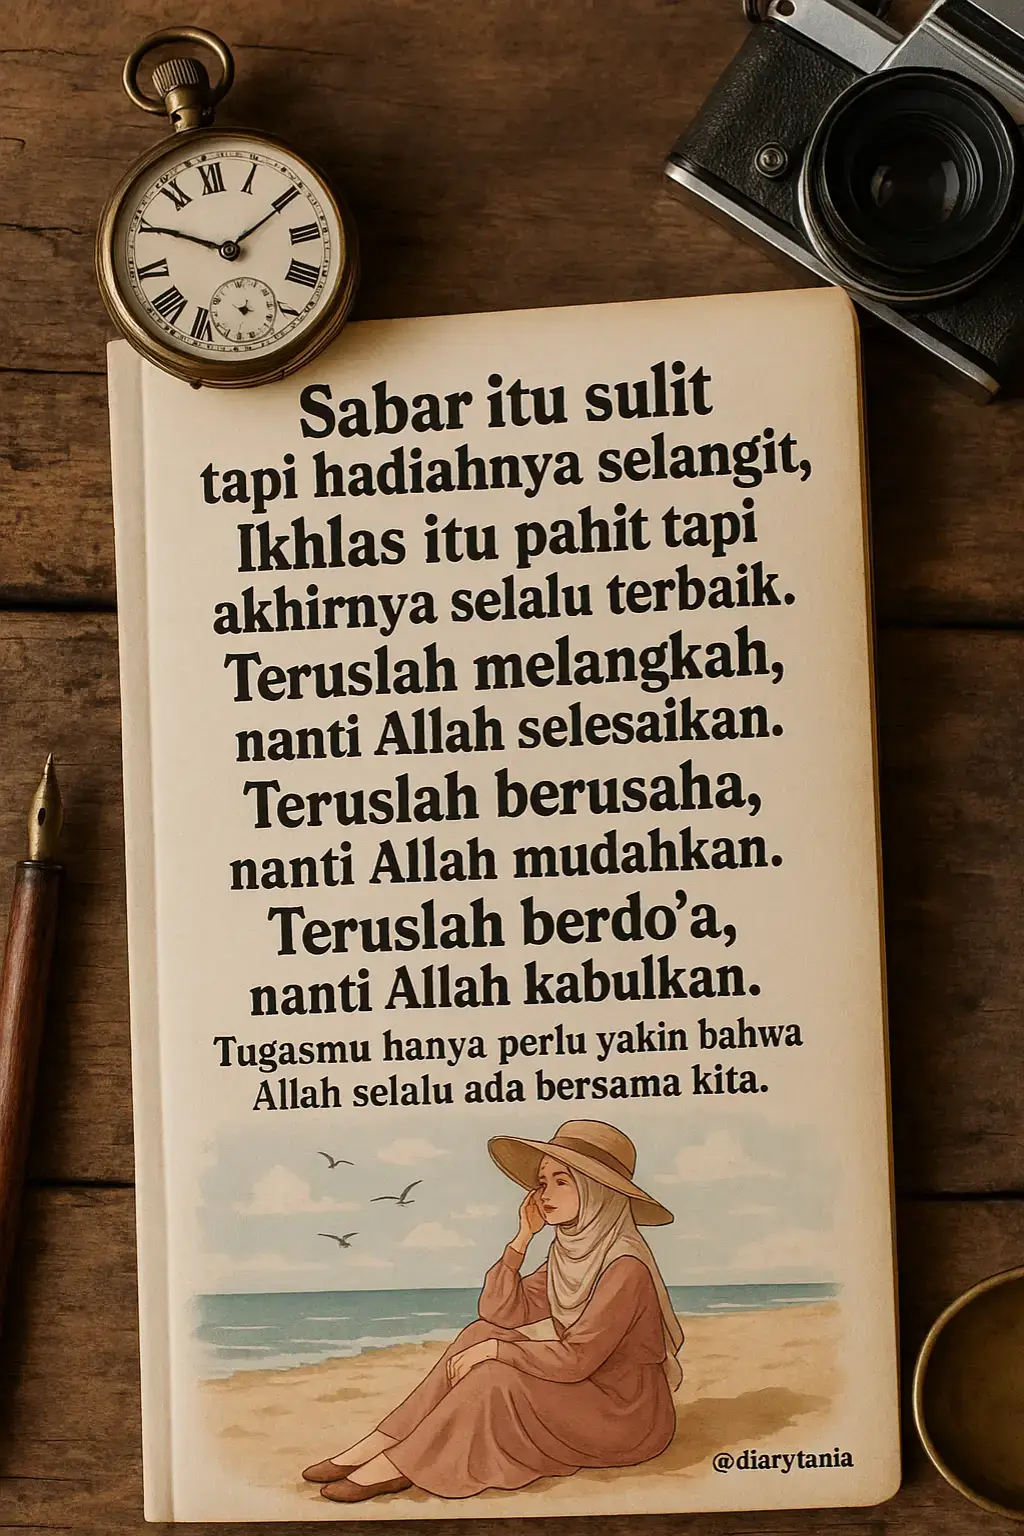 XII
I
II
III
IIII
VII
VIII
IX
X
XI
Sabar itu sulit
tapi hadiahnya selangit,
Ikhlas itu pahit tapi
akhirnya selalu terbaik.
Teruslah melangkah,
nanti Allah selesaikan.
Teruslah berusaha,
nanti Allah mudahkan.
Teruslah berdo’a,
nanti Allah kabulkan.
Tugasmu hanya perlu yakin bahwa
Allah selalu ada bersama kita.
@diarytania